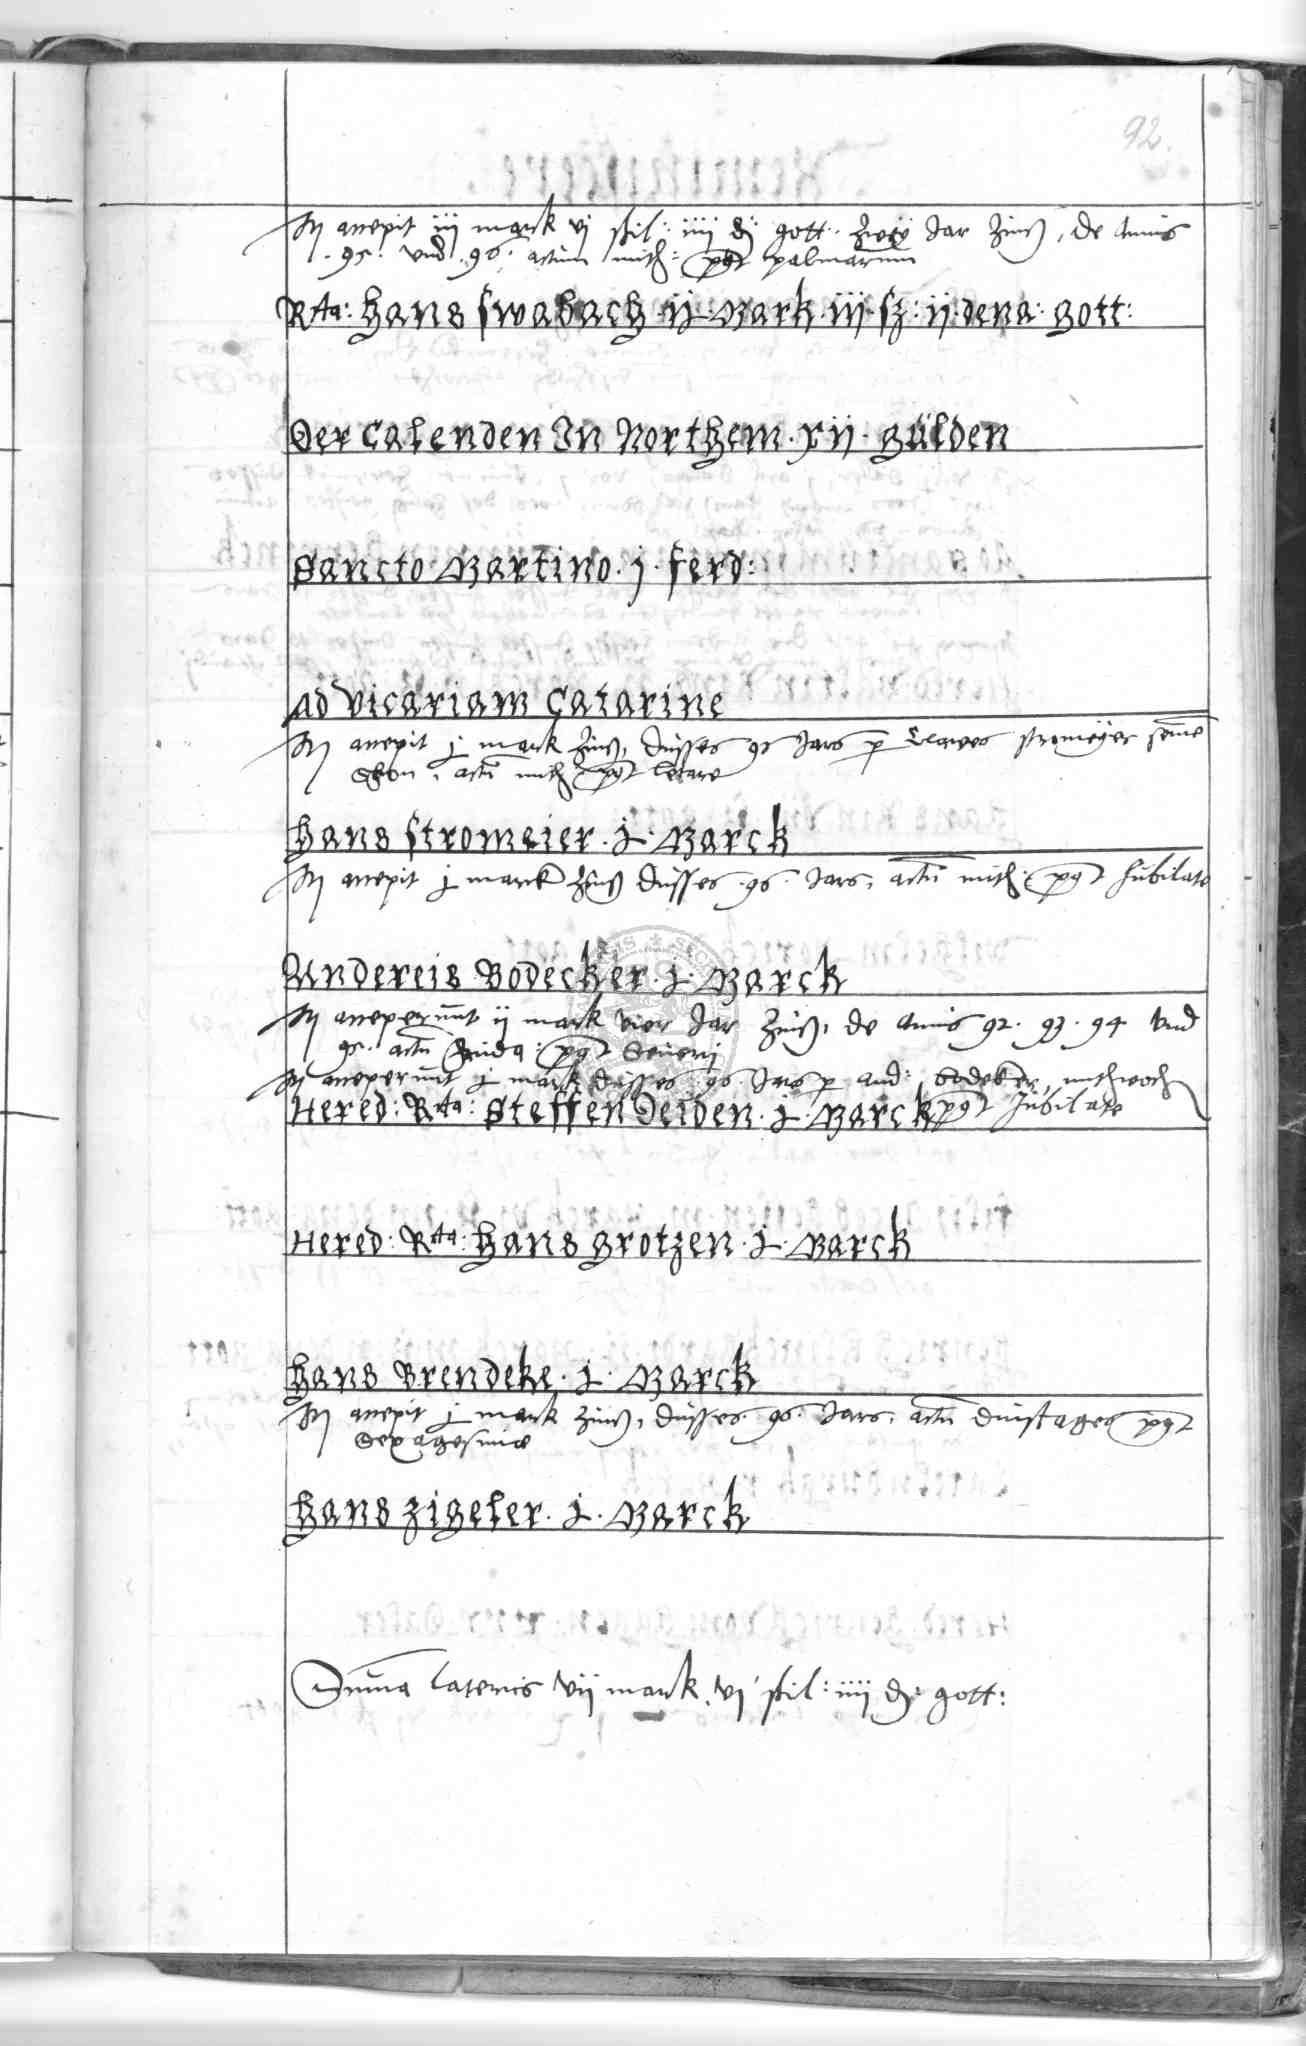 92.
accepit iij mark vj ßil: iiij d gott: zwey Jar Zinß, de Annis
.95. vnd .96. actum mith: post palmarum
Rta: Hans Swabach .ij. Mark .iij. sz: ij. dena: Gott:
Der Calenden In Northem .xij. Gülden
Sancto Martino .j. ferd:
Ad Vicariam Catarine
accepit j mark Zinß, dusses 96 Jars p Clawes stromeyer
actum mith: post letare
Hans Stromeier .j. Marck
accepit j marck Zinß dusses .96. Jars, actum mith: post Jubilate
Andereis Bodecker .j. Marck
acceperunt ij mark vier Jar Zinß, de Annis 92. 93. 94 vnd
95. actum post Seueri
acceperunt j mark dusses .96. Jars p And: bodeker, mithwoch
Hered: Rta: Steffen Deiden .j. Marck post Jubilate
Hered: Rta: Hans Grotzen .j. Marck
Hans Brendeke .j. Marck
accepit j mark Zinß, dusses .96. Jars, actum dinstages post
Sexagesimae
Hans Zigeler .j. Marck
Summa lateris vij mark .vj ßil: iiij d: gott: